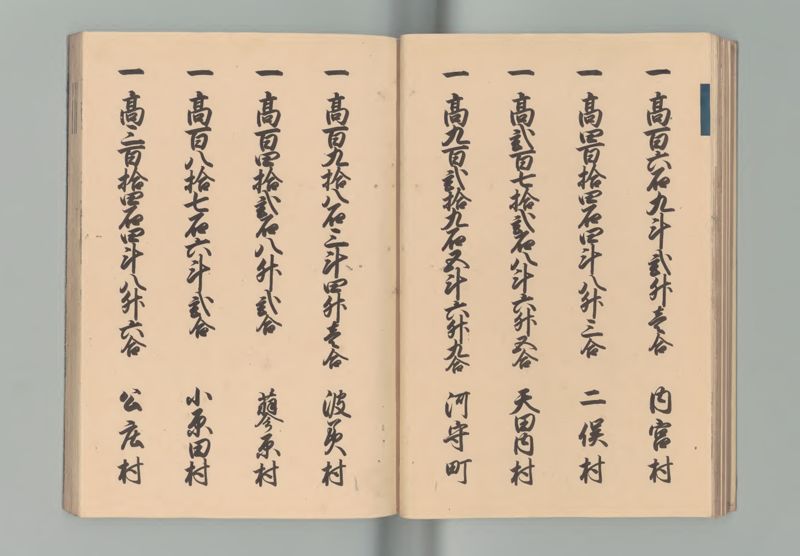 一 高百六石九斗弐升壱合 内宮村
一 高四百拾四石四斗八升三合 二俣村
一 高弐百七拾弐石八斗六升五合 天田内村
一 高九百弐拾九石五斗六升九合 河守町
一 高百九拾八石三斗四升壱合 波美村
一 高百四拾弐石八升弐合 蓼原村
一 高百八拾七石六斗弐合 小原田村
一 高三百拾四石四斗八升六合 公庄村